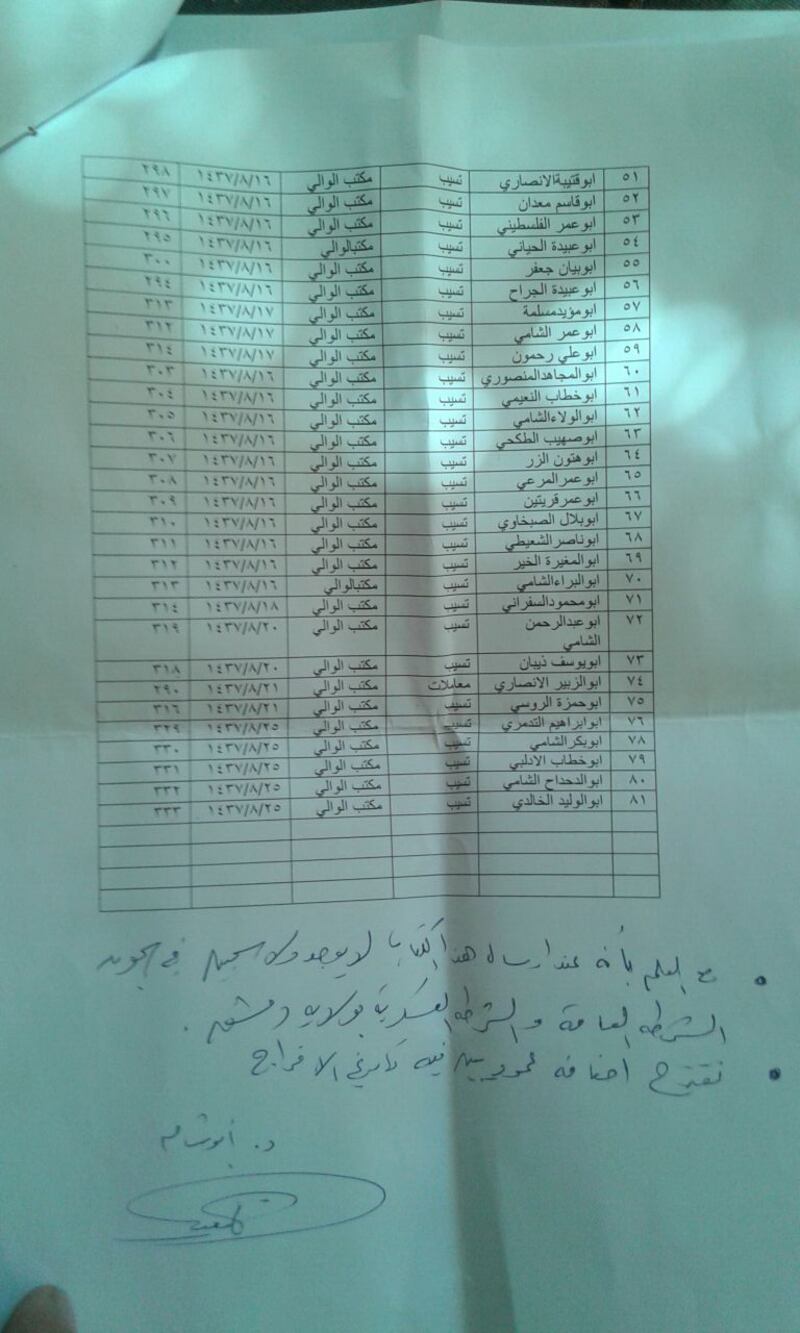 ٥١ ابوقتيبةالانصاري تسيب مكتب الوالي ١٤٣٧/٨/١٦ ٢٩٨
٥٢ ابوقاسم معدان تسيب مكتب الوالي ١٤٣٧/٨/١٦ ٢٩٧
٥٣ ابوعمر الفلسطيني تسيب مكتب الوالي ١٤٣٧/٨/١٦ ٢٩٦
٥٤ ابوعبيدة الحياني تسيب مكتبالوالي ١٤٣٧/٨/١٦ ٢٩٥
٥٥ ابوبيان جعفر تسيب مكتب الوالي ١٤٣٧/٨/١٦ ٣٠٠
٥٦ ابوعبيدة الجراح تسيب مكتب الوالي ١٤٣٧/٨/١٦ ٢٩٤
٥٧ ابومؤيدمسلمة تسيب مكتب الوالي ١٤٣٧/٨/١٧ ٣١٣
٥٨ ابوعمر الشامي تسيب مكتب الوالي ١٤٣٧/٨/١٧ ٣١٢
٥٩ ابوعلي رحمون تسيب مكتب الوالي ١٤٣٧/٨/١٧ ٣١٤
٦٠ ابوالمجاهدالمنصوري تسيب مكتب الوالي ١٤٣٧/٨/١٦ ٣٠٣
٦١ ابوخطاب النعيمي تسيب مكتب الوالي ١٤٣٧/٨/١٦ ٣٠٤
٦٢ ابوالولاءالشامي تسيب مكتب الوالي ١٤٣٧/٨/١٦ ٣٠٥
٦٣ ابوصهيب الطكحي تسيب مكتب الوالي ١٤٣٧/٨/١٦ ٣٠٦
٦٤ ابوهتون الزر تسيب مكتب الوالي ١٤٣٧/٨/١٦ ٣٠٧
٦٥ ابوعمرالمرعي تسيب مكتب الوالي ١٤٣٧/٨/١٦ ٣٠٨
٦٦ ابوعمرقريتين تسيب مكتب الوالي ١٤٣٧/٨/١٦ ٣٠٩
٦٧ ابوبلال الصبخاوي تسيب مكتب الوالي ١٤٣٧/٨/١٦ ٣١٠
٦٨ ابوناصرالشعيطي تسيب مكتب الوالي ١٤٣٧/٨/١٦ ٣١١
٦٩ ابوالمغيرة الخير تسيب مكتب الوالي ١٤٣٧/٨/١٦ ٣١٢
٧٠ ابوالبراءالشامي تسيب مكتبالوالي ١٤٣٧/٨/١٦ ٣١٣
٧١ ابومحمودالسفراني تسيب مكتب الوالي ١٤٣٧/٨/١٨ ٣١٤
٧٢ ابوعبدالرحمن تسيب مكتب الوالي ١٤٣٧/٨/٢٠ ٣١٩
الشامي
٧٣ ابويوسف ذيبان تسيب مكتب الوالي ١٤٣٧/٨/٢٠ ٣١٨
٧٤ ابوالزبير الانصاري معاملات مكتب الوالي ١٤٣٧/٨/٢١ ٢٩٠
٧٥ ابوحمزة الروسي تسيب مكتب الوالي ١٤٣٧/٨/٢١ ٣١٦
٧٦ ابوابراهيم التدمري تسيب مكتب الوالي ١٤٣٧/٨/٢٥ ٣٢٩
٧٨ ابوبكرالشامي تسيب مكتب الوالي ١٤٣٧/٨/٢٥ ٣٣٠
٧٩ ابوخطاب الادلبي تسيب مكتب الوالي ١٤٣٧/٨/٢٥ ٣٣١
٨٠ ابوالدحداح الشامي تسيب مكتب الوالي ١٤٣٧/٨/٢٥ ٣٣٢
٨١ ابوالوليد الخالدي تسيب مكتب الوالي ١٤٣٧/٨/٢٥ ٣٣٣
• مع العلم بأنه عند ارسال هذا الكتاب لا يوجد ولا سجين في سجون
الشرطه العامة و الشرطه العسكرية بولايه دمشق .
• نقترح اضافه عمود يبين فيه تاريخ الافراج
د. أبو شام